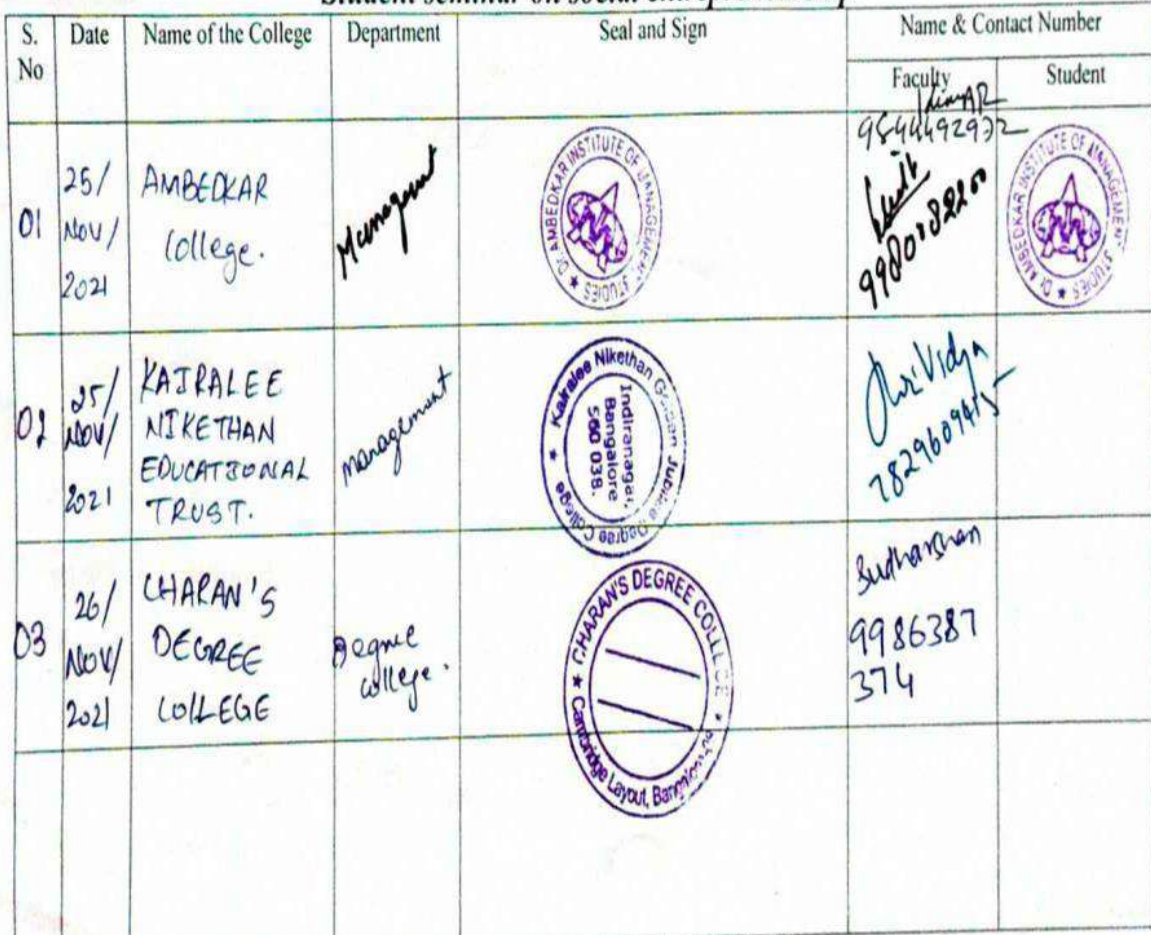 Student seminar on social entrepreneurship
S. No Date Name of the College Department Seal and Sign Name & Contact Number
Faculty Student
01 25/ Nov/ 2021 AMBEDKAR College. Management
Dr. AMBEDKAR INSTITUTE OF MANAGEMENT STUDIES ★
9544492972
Dr. AMBEDKAR INSTITUTE OF MANAGEMENT STUDIES ★
02 25/ NOV/ 2021 KAIRALEE NIKETHAN EDUCATIONAL TRUST. management
★ Kairalee Nikethan Golden Jubilee Degree College
Indiranagar, Bangalore 560 038.
Shri Vidya
7829609415
03 26/ NOV/ 2021 CHARAN'S DEGREE COLLEGE Degree college.
★ CHARAN'S DEGREE COLLEGE ★ Cambridge Layout, Bangalore
Sudharshan
9986387
374